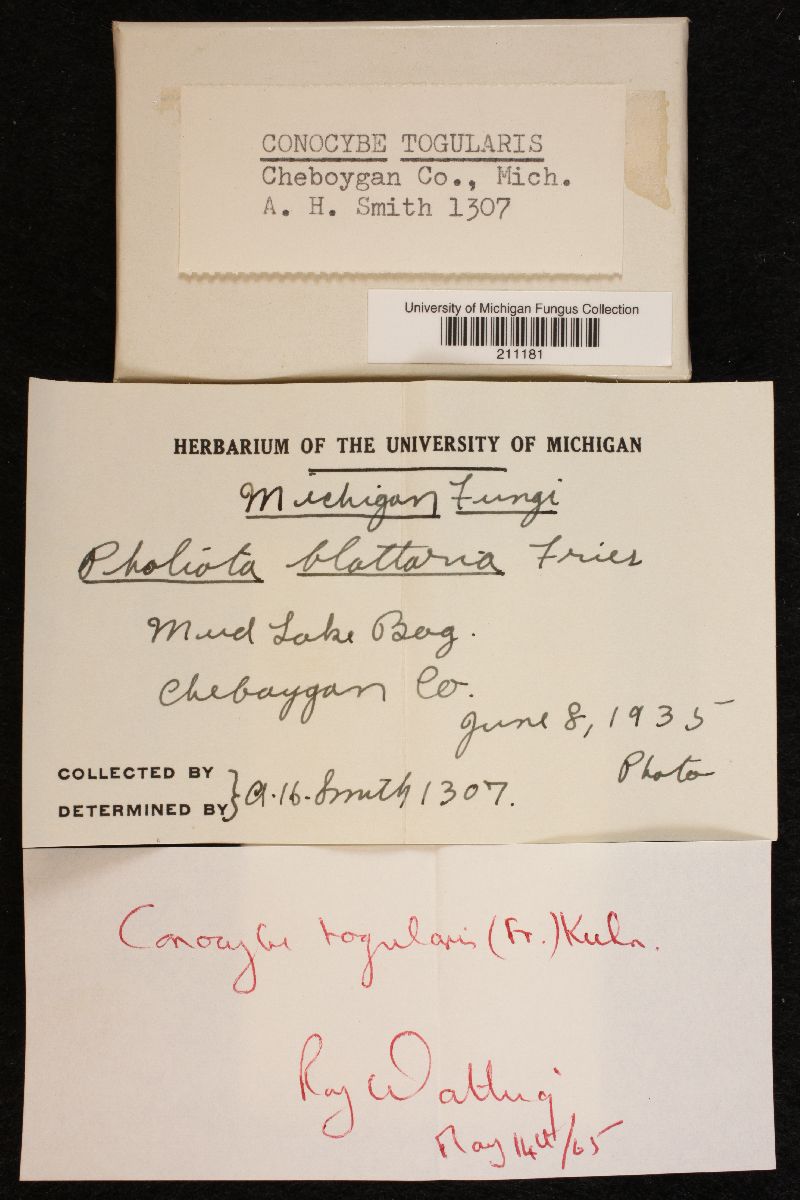 CONOCYBE TOGULARIS
Cheboygan Co., Mich.
A. H. Smith 1307
University of Michigan Fungus Collection
211181
HERBARIUM OF THE UNIVERSITY OF MICHIGAN
Michigan Fungi
Pholiota blattaria Fries
Mud Lake Bog.
Cheboygan Co.
June 8, 1935
Photo
COLLECTED BY
DETERMINED BY } A. H. Smith 1307.
Conocybe togularis (Fr.) Kuhn.
Roy Watling
May 14th/65